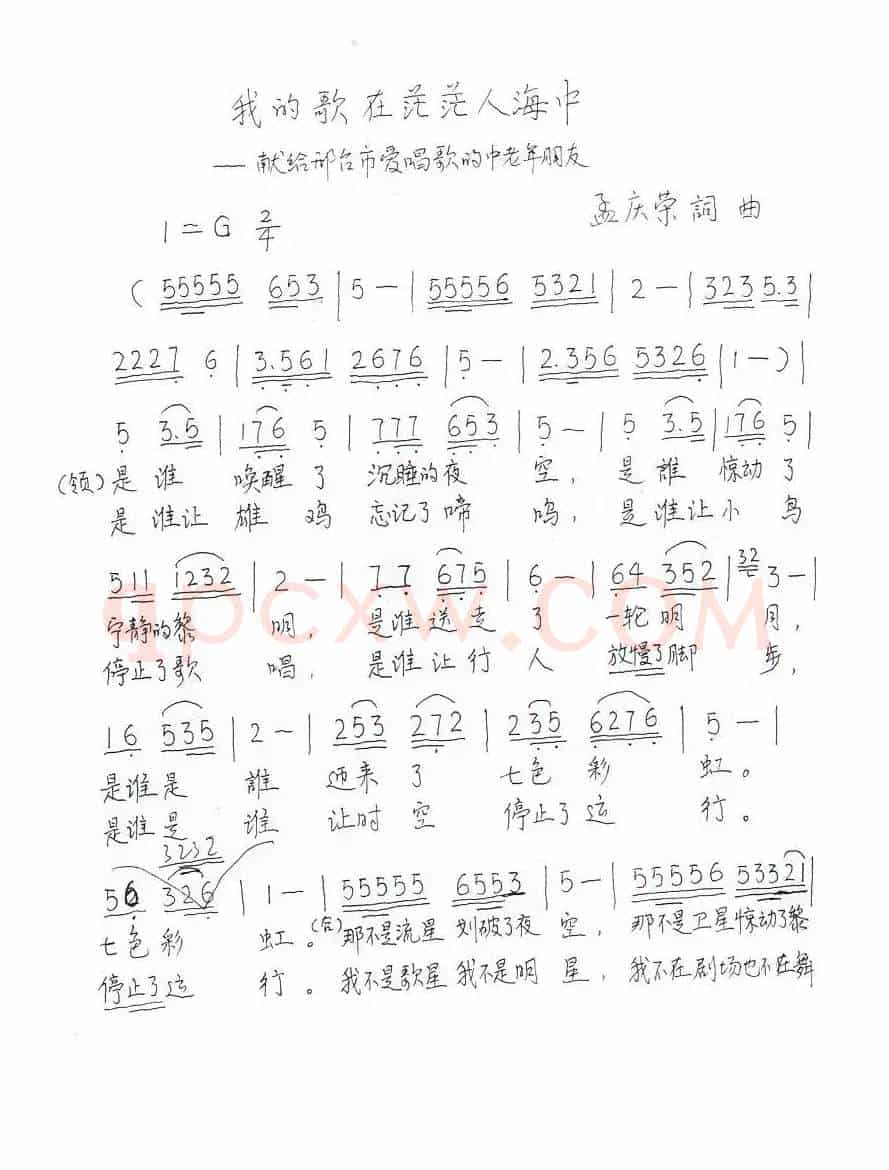 我的歌在茫茫人海中
—献给邢台市爱唱歌的中老年朋友
1=G 2/4
孟庆荣詞曲
( 55555 653 | 5 - | 55556 5321 | 2 - | 323 5.3 |
2227 6 | 3.561 2676 | 5 - | 2.356 5326 | 1 - ) |
5 3.5 | 176 5 | 777 653 | 5 - | 5 3.5 | 176 5 |
(领) 是谁 唤醒了 沉睡的夜 空, 是誰 惊动了
是谁让 雄鸡 忘记了啼 鸣, 是谁让小鸟
511 1232 | 2 - | 77 675 | 6 - | 64 352 | 32 3 - |
宁静的黎 明, 是谁送走了 一轮明 月,
停止了歌 唱, 是谁让行人 放慢了脚 步,
16 535 | 2 - | 253 272 | 235 6276 | 5 - |
是谁是 誰 迎来了 七色彩 虹。
是谁是 谁 让时空 停止了运 行。
3232
56 326 | 1 - | 55555 6553 | 5 - | 55556 53321 |
七色彩 虹。(合) 那不是流星 划破了夜 空, 那不是卫星惊动了黎
停止了运 行。 我不是歌星 我不是明 星, 我不在剧场也不在舞
qpcxw.com